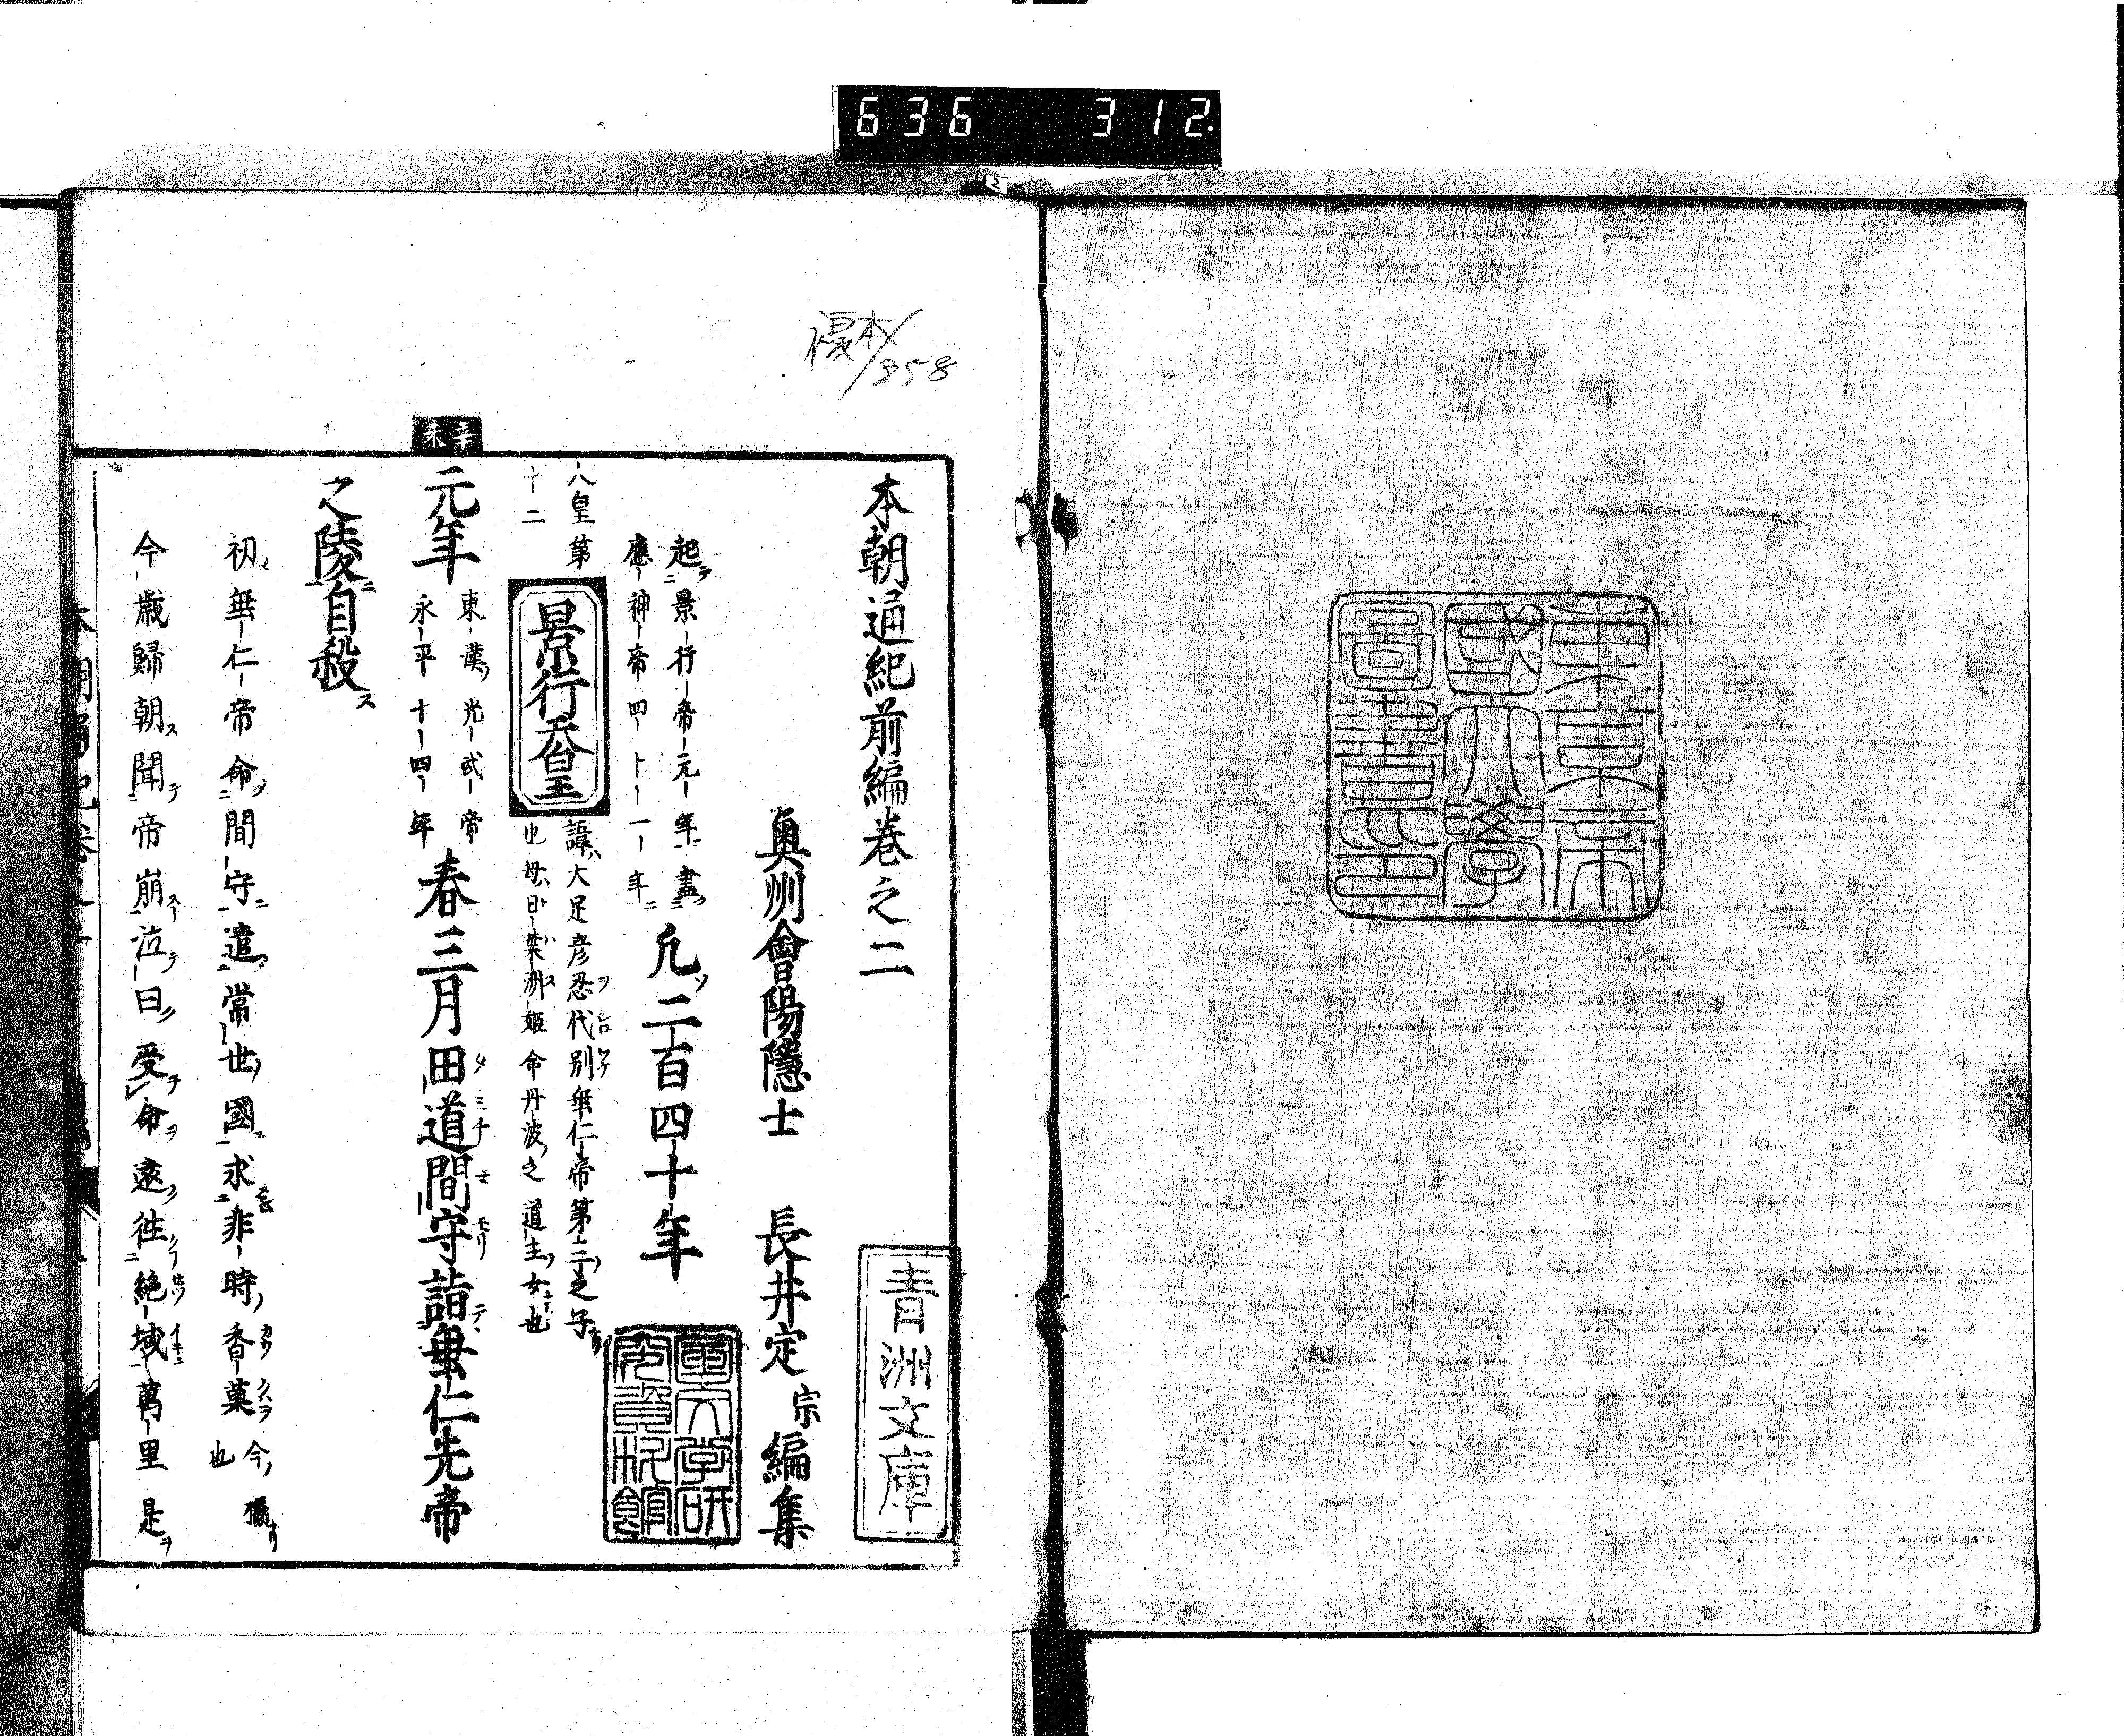 636 312
2
東京帝
國大學
圖書印
複本/858
本朝通紀前編巻之二
青洲文庫
奥州會陽隱士 長井定宗編集
起景行帝元年盡
應神帝四十一年
凢二百四十年
國文学研
究資料館
人皇第
十二
景行天皇
諱大足彦忍代別垂仁帝第三之子
也母曰葉洲姫命丹波之道主女也
辛未
元年
東漢光武帝
永平十四年
春三月田道間守詣垂仁先帝
之陵自殺
初垂仁帝命間守遣常世國求非時香菓今
也
今歳歸朝聞帝崩泣曰受命遠徃絶域萬里是